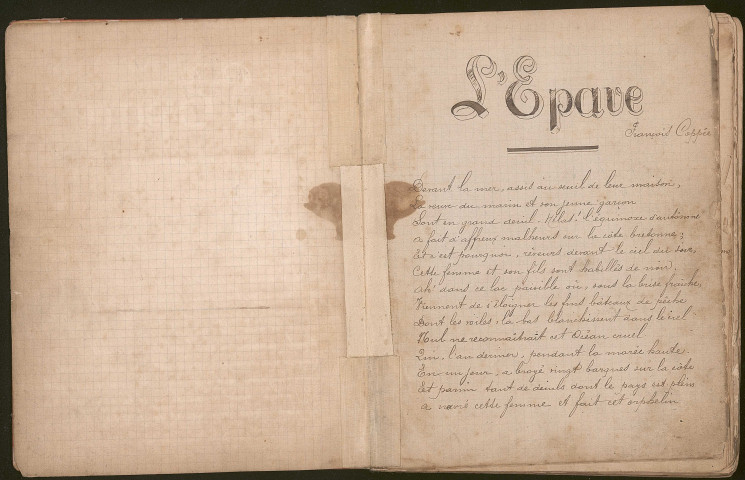 L'Epave
François Coppée
Devant la mer, assis au seuil de leur maison,
La veuve du marin et son jeune garçon
Sont en grand deuil. Hélas! l'équinoxe d'automne
a fait d'affreux malheurs sur la côte bretonne;
Et c'est pourquoi, rêveurs devant le ciel du soir,
Cette femme et son fils sont habillés de noir.
Ah! dans ce lac paisible où, sous la brise fraîche,
Viennent de s'éloigner les fins bâteaux de pêche
Dont les voiles, là-bas blanchissent dans le ciel
Nul ne reconnaîtrait cet Océan cruel
Qui, l'an dernier, pendant la marée haute.
En un jour, a broyé vingt barques sur la côte
Et parmi tant de deuils dont le pays est plein
a navré cette femme et fait cet orphelin